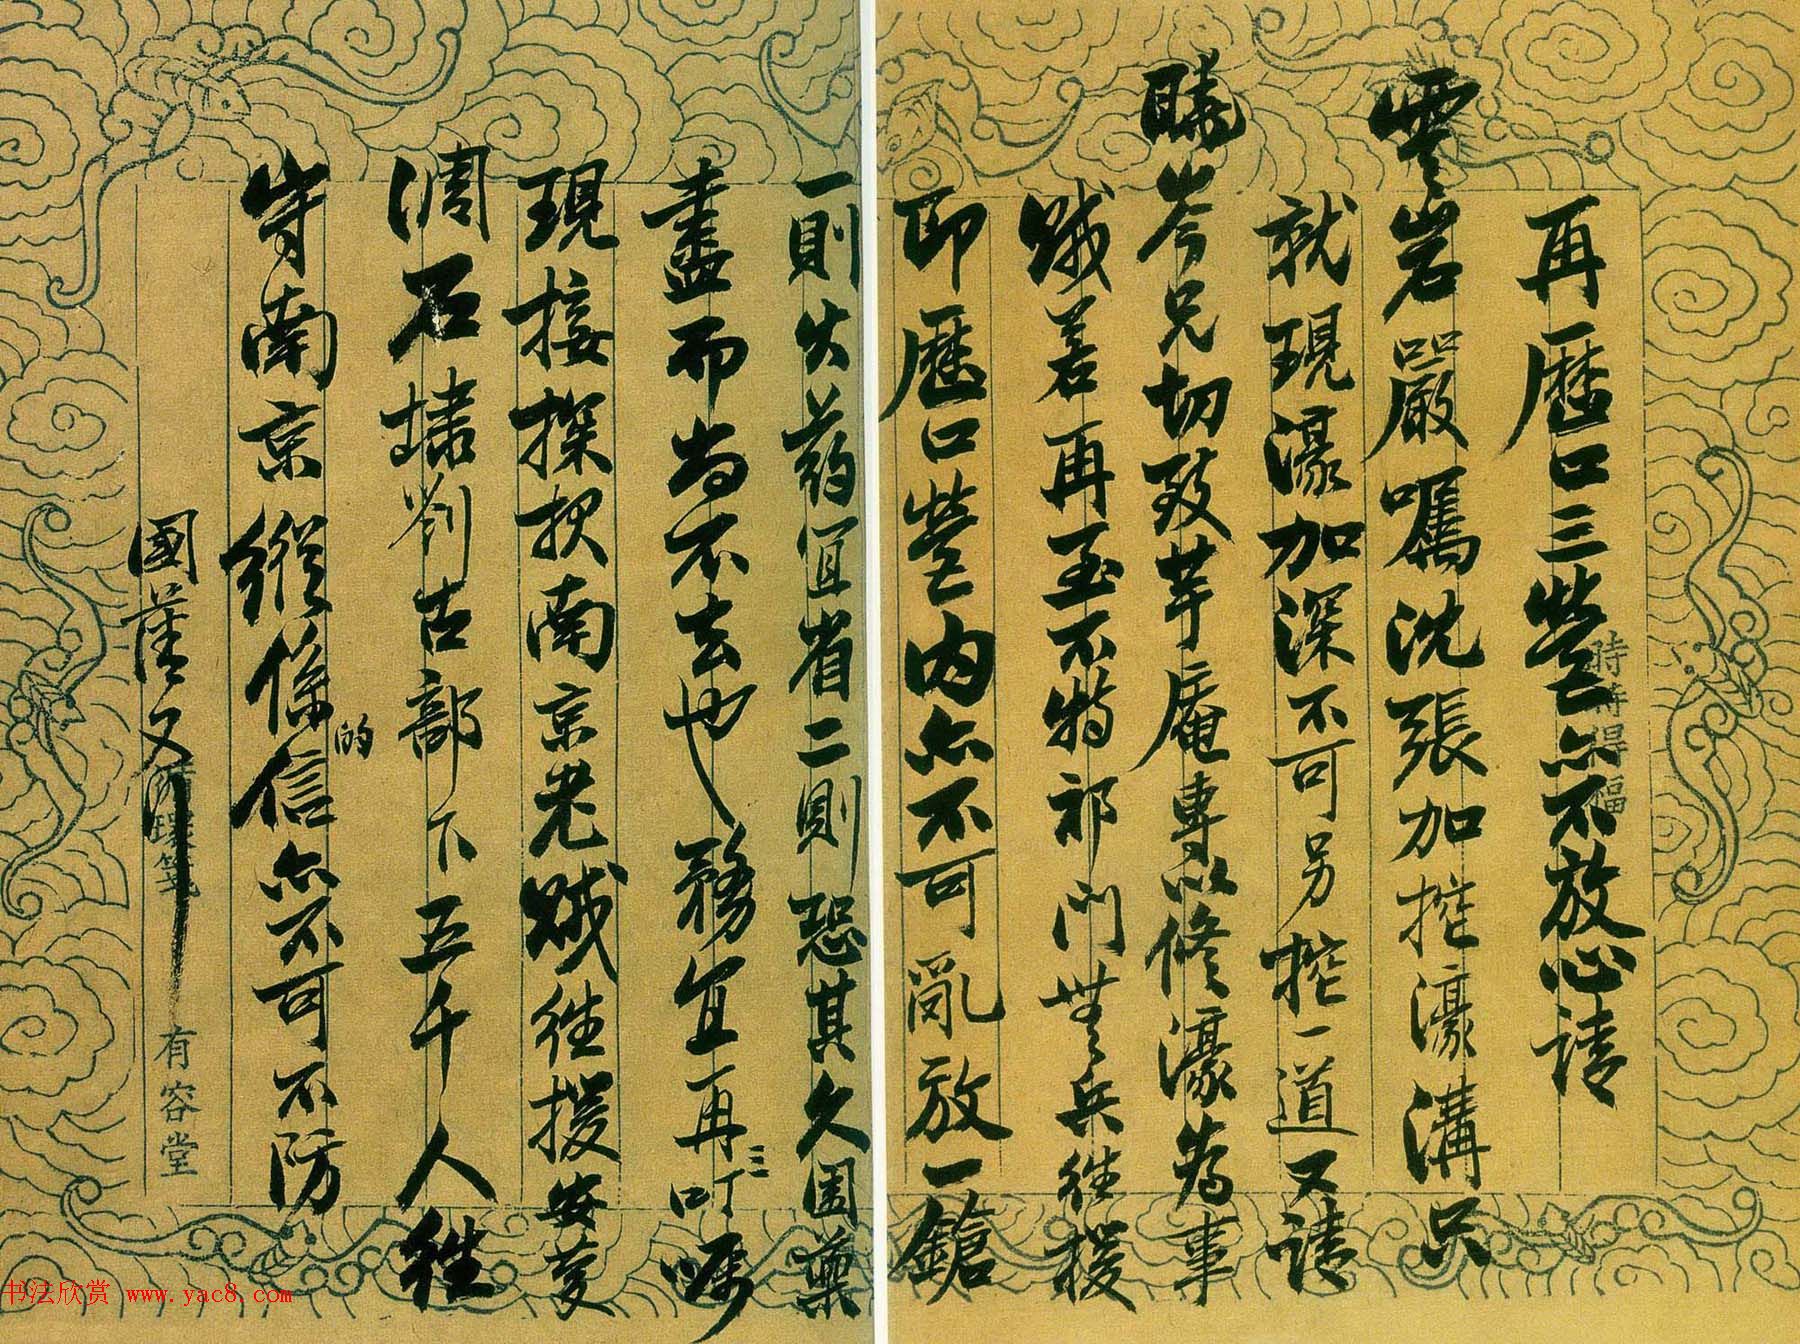 再歷口三營亦不放心請
雲岩嚴囑沈張加挖濠溝只
就現濠加深不可另挖一道又請
曉岑兄切致芋庵專以修濠為事
賊若再至不特祁門無兵往援
即歷口營內亦不可亂放一鎗
一則火药宜省二則恐其久圍藥
盡而尚不去也務宜再三叮嘱
現接探报南京老賊往援安慶
調石埭劉古部下五千人往
守南京縱係的信亦不可不防
國藩又
時時得福
有容堂
书法欣赏 www.yac8.com